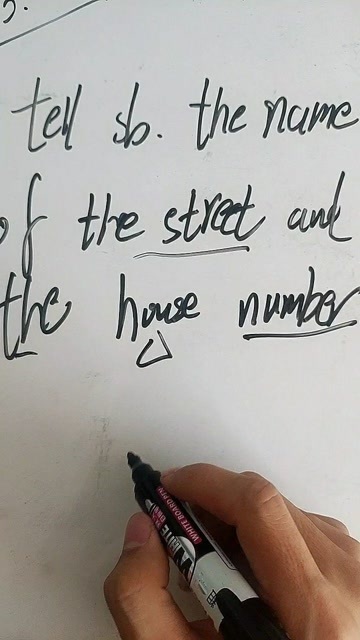 5.
tell sb. the name
of the street and
the house number
WHITE BOARD PEN